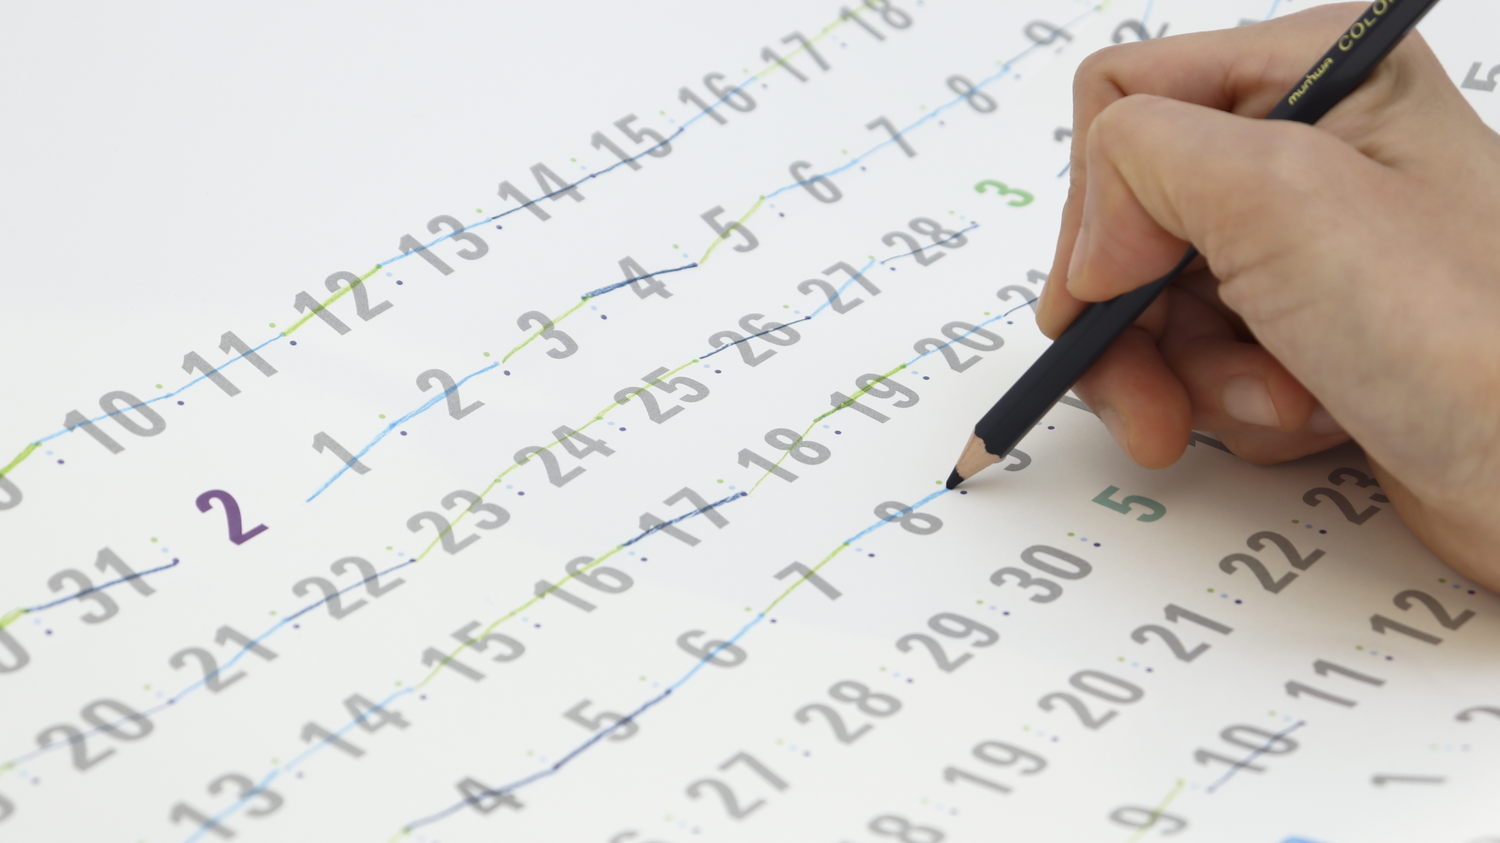 10 11 12 13 14 15 16 17 18
31 2 1 2 3 4 5 6 7 8 9
20 21 22 23 24 25 26 27 28 3
13 14 15 16 17 18 19 20 21
4 5 6 7 8 9
27 28 29 30 5
18 19 20 21 22 23
9 10 11 12
1
2
5
munwa COLOR